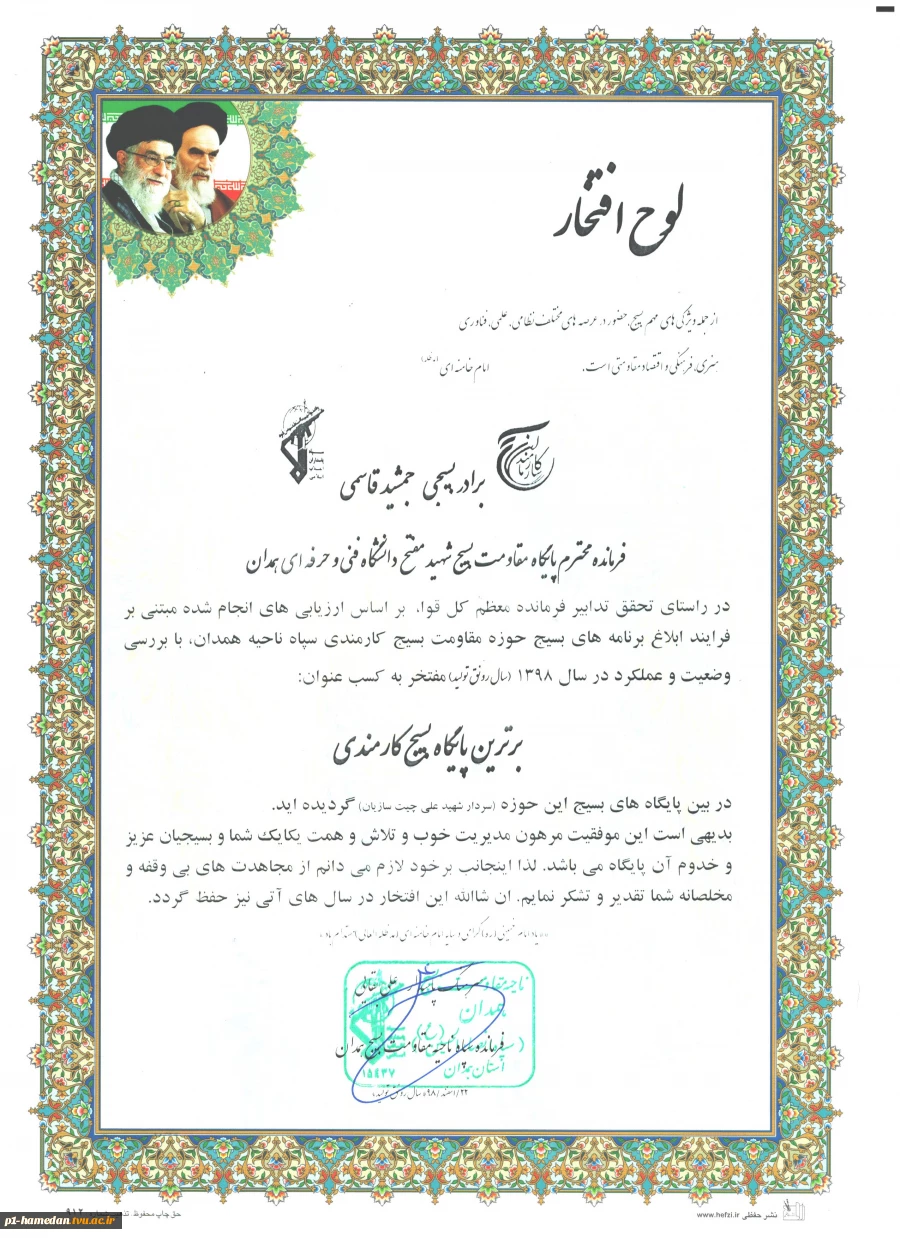 لوح افتخار
از جمله ویژگی های مهم بسیج، حضور در عرصه های مختلف نظامی، علمی، فناوری
هنری، فرهنگی و اقتصاد مقاومتی است. امام خامنه ای
کارمندان
برادر بسیجی جمشید قاسمی
فرمانده محترم پایگاه مقاومت بسیج شهید مفتح دانشگاه فنی و حرفه ای همدان
در راستای تحقق تدابیر فرمانده معظم کل قوا، بر اساس ارزیابی های انجام شده مبتنی بر
فرایند ابلاغ برنامه های بسیج حوزه مقاومت بسیج کارمندی سپاه ناحیه همدان، با بررسی
وضعیت و عملکرد در سال ۱۳۹۸ (سال رونق تولید) مفتخر به کسب عنوان:
برترین پایگاه بسیج کارمندی
در بین پایگاه های بسیج این حوزه (سردار شهید علی چیت سازیان) گردیده اید.
بدیهی است این موفقیت مرهون مدیریت خوب و تلاش و همت یکایک شما و بسیجیان عزیز
و خدوم آن پایگاه می باشد. لذا اینجانب برخود لازم می دانم از مجاهدت های بی وقفه و
مخلصانه شما تقدیر و تشکر نمایم. ان شاالله این افتخار در سال های آتی نیز حفظ گردد.
ناحیه مقاومت
همدان
استان همدان
۱۵۴۳۷
فرمانده سپاه ناحیه مقاومت بسیج همدان
۲۲/اسفند/۹۸ه سال رونق تولید،
نشر حفظی www.hefzi.ir
حق چاپ محفوظ
p1-hamedan.tvu.ac.ir